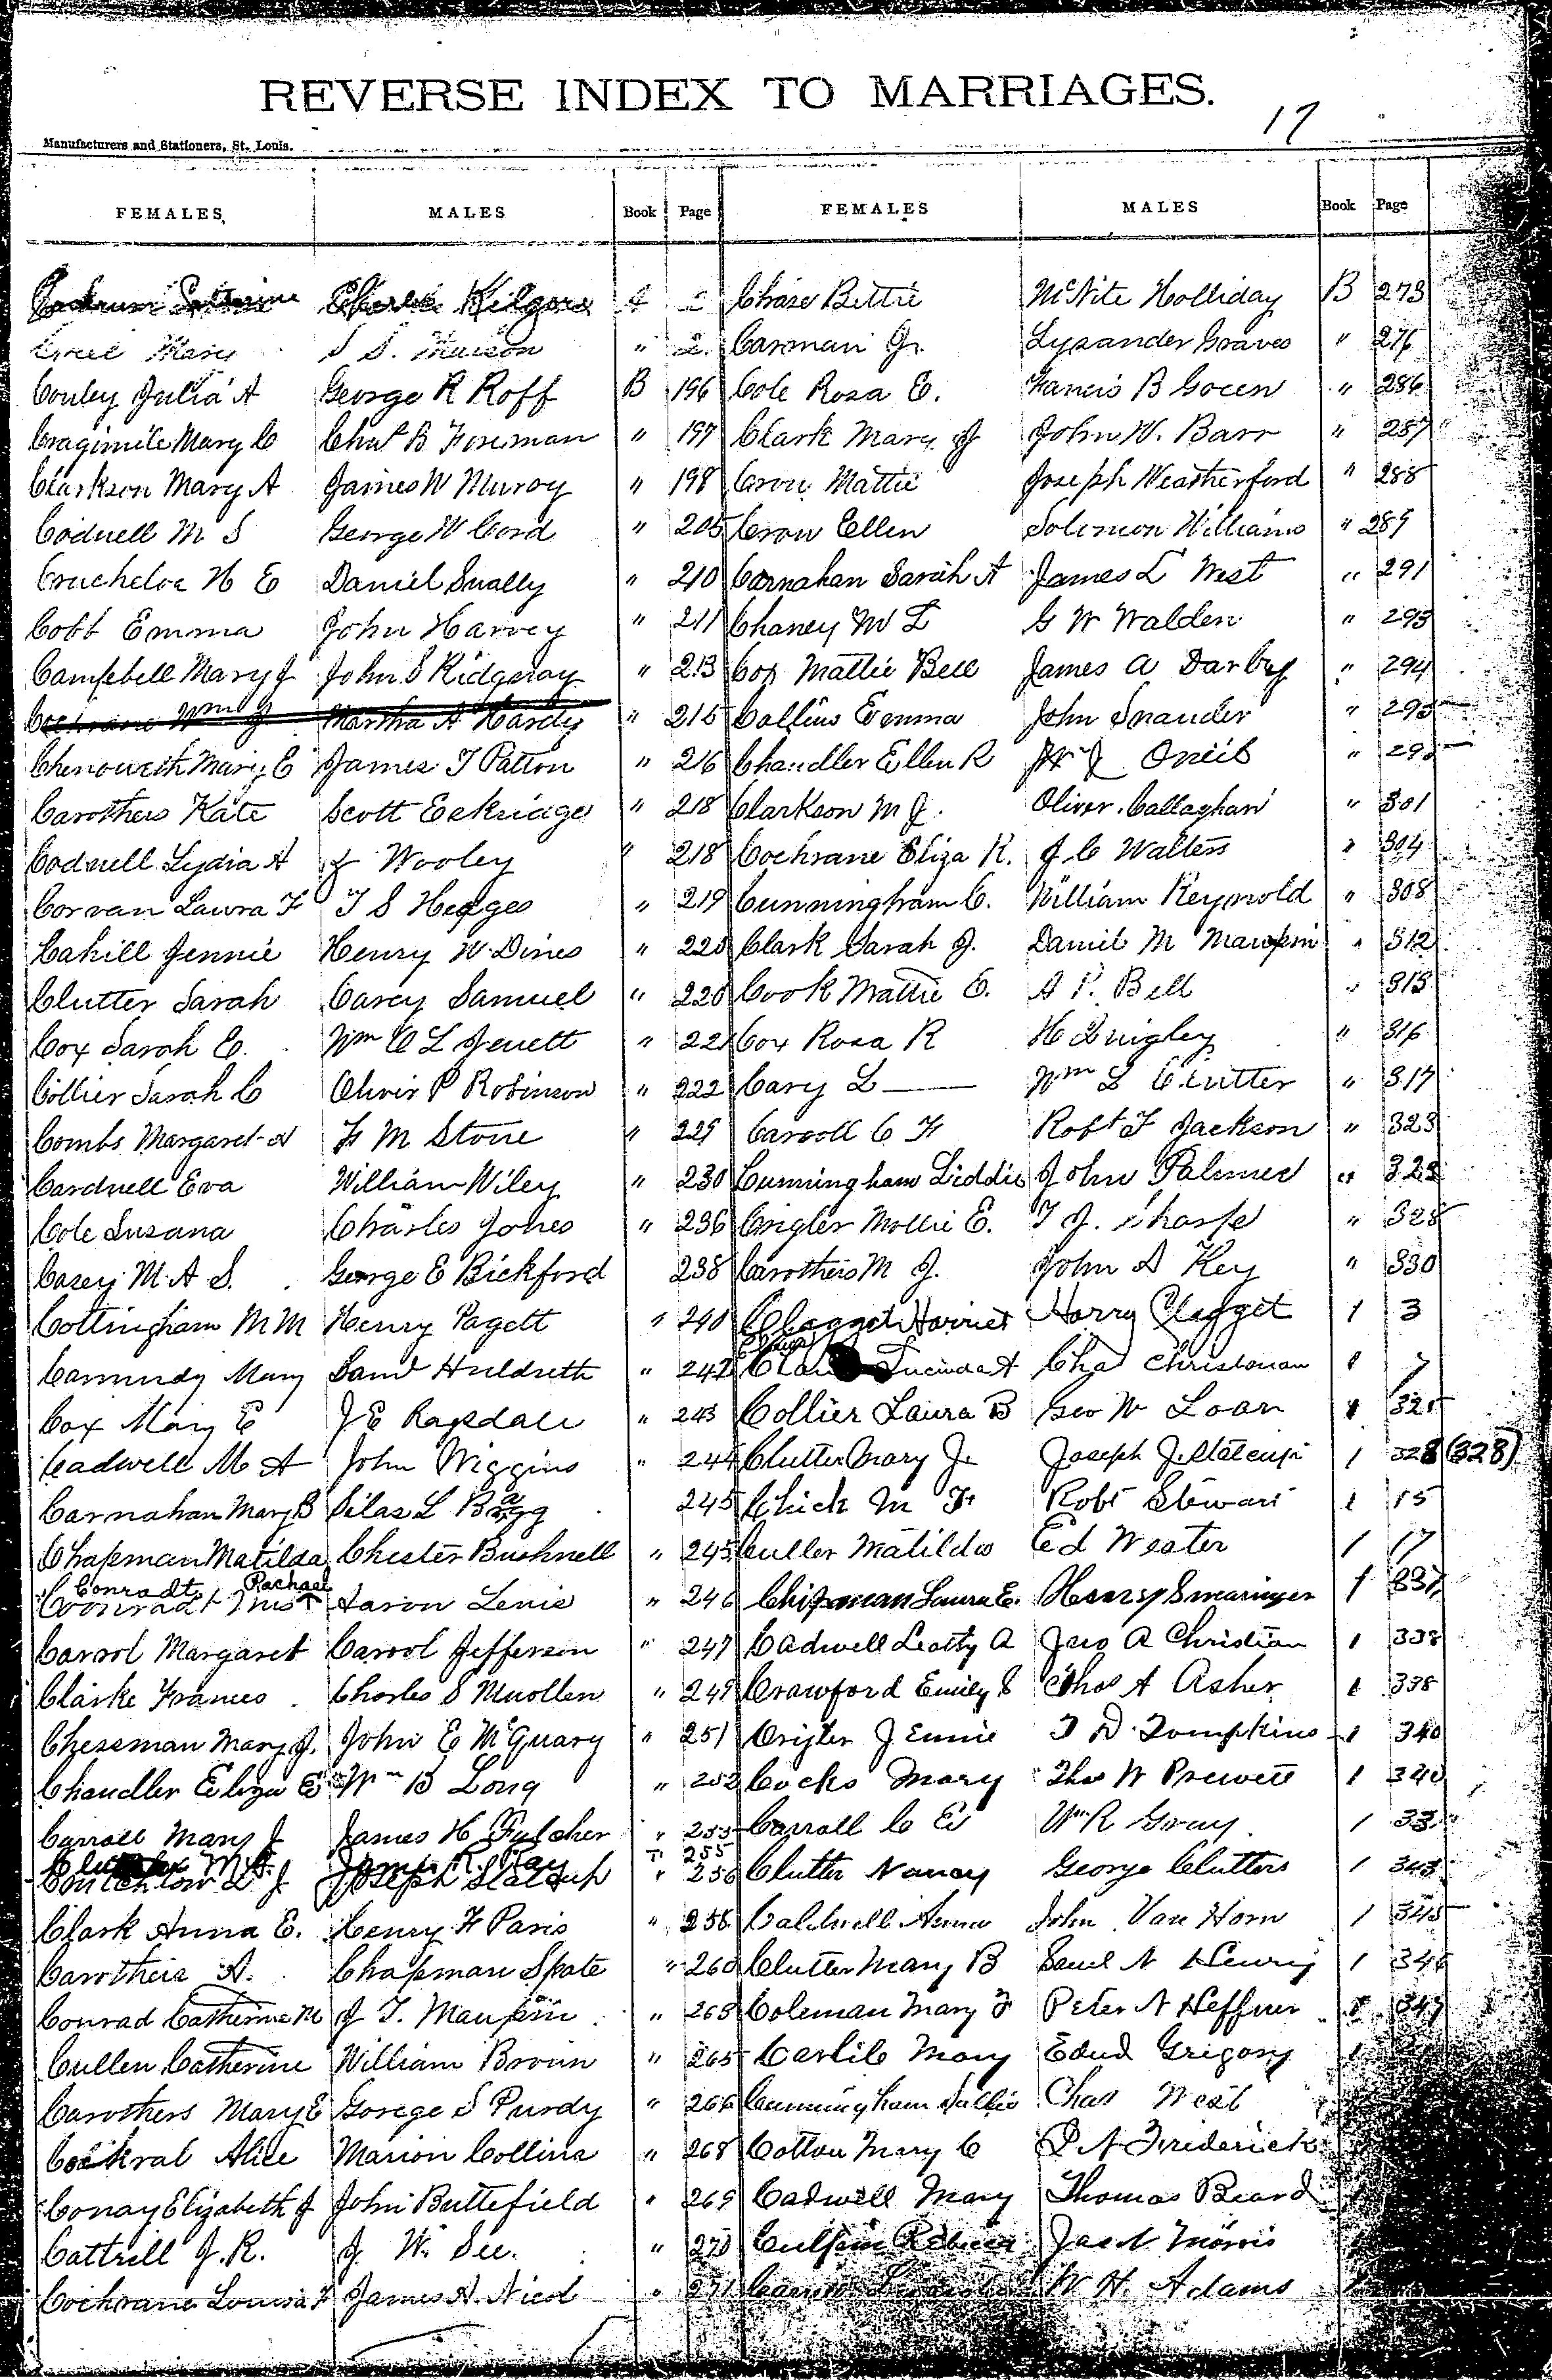 REVERSE INDEX TO MARRIAGES.
17
Manufacturers and Stationers, St. Louis.
FEMALES MALES Book Page FEMALES MALES Book Page
Charles Kilgore A Chase Bettie McNite Holliday B 273
Mary S S. " 2 Carman Lysander Graves " 276
Conley Julia A George R Roff B 196 Cole Rosa E. Francis B Goeen " 286
Cragimile Mary C Chas B Foreman " 197 Clark Mary J John W. Barr " 287
Clarkson Mary A James W Muroy " 198 Crow Mattie Joseph Weatherford " 288
Codwell M S George W Cord " 205 Crow Ellen Solomon Williams " 289
Cruchelor H E Daniel Snally " 210 Carnahan Sarah A James L West " 291
Cobb Emma John Harvey " 211 Chaney M L G W Walden " 293
Campbell Mary J John S Ridgeway " 213 Cox Mattie Bell James A Darby " 294
Cochrane Wm J Martha A Hardy " 215 Collins Emma John Snauder " 295
Chenoweth Mary E James T Patton " 216 Chandler Ellen R Oneil " 295
Carothers Kate Scott Eskridge " 218 Clarkson M J. Oliver Callaghan " 301
Codwell Lydia A J Wooley " 218 Cochrane Eliza R. J C Walters " 304
Corvan Laura F T S Hedges " 219 Cunningham C. William Reynold " 308
Cahill Jennie Henry W Dines " 220 Clark Sarah J. Daniel M Maupin " 312
Clutter Sarah Carey Samuel " 220 Cook Mattie E. A P. Bell " 313
Cox Sarah E. Wm C L Jewett " 221 Cox Rosa R H Quigley " 316
Collier Sarah C Oliver P Robinson " 222 Cary L — Wm L Clutter " 317
Combs Margaret A F M Stone " 229 Carroll C F Robt F Jackson " 323
Cardwell Eva William Wiley " 230 Cunningham Liddie John Palmer "
Cole Susana Charles Jones " 236 Crigler Mollie E. T J. Sharp " 328
Casey M. A S. George E Bickford 238 Carothers M J. John D Key " 330
Cottingham M M Henry Pagett " 240 Clagget Harriet Harry Clagget 1 3
Camundy Mary Saml Huldreth " 242 Lucinda A Chas Christman 1 7
Cox Mary E J E Ragsdale " 243 Collier Laura B Geo W Loan 1 325
Cadwell M A John Wiggins " 244 Clutter Mary J. Joseph J. Statcup 1 328 (328)
Carnahan Mary B Silas L Bragg 245 Chick M F Robt Stewart 1 15
Chapman Matilda Chester Bushnell " 245 Culler Matilda Ed Wester 1 17
Conradt Rachael Aaron Lenie " 246 Chipman Laura E. Henry Swearinger 1 337
Carrol Margaret Carrol Jefferson " 247 Cadwell Leatty A Jno A Christian 1 338
Clarke Frances Charles S Muollen " 249 Crawford Emily S Chas A Asher 1 338
Chessman Mary J. John E McQuary " 251 Crigler Jennie T D Tompkins 1 340
Chandler Eliza E Wm B Long " 252 Cocks Mary Thos W Prewett 1 340
Carroll Mary J James H Fulcher " 255 Carroll C E Wm R Gray 1 33
James R. Ray " 255
Joseph Stalcup " 256 Clutter Nancy George Clutters 1 343
Clark Anna E. Henry F Paris " 256 Caldwell Anna John Van Horn 1 345
Carothers A. Chapman Spate " 260 Clutter Mary B Saml N Henry 1 346
Conrad Catherine M J T. Maupin " 263 Coleman Mary F Peter N Heffner 1 347
Cullen Catherine William Brown " 265 Carlile Mary Edwd Grigory 1
Carothers Mary E Gorege S Purdy " 266 Cunningham Sallie Chas West
Cockral Alice Marion Collins " 268 Cotton Mary C P N Frederick
Conay Elizabeth J John Buttefield " 269 Cadwell Mary Thomas Beard
Cattrill J. R. J. W. See. " 270 Rebecca Jacob Morris
Cochrane Louisa F James N. Nicol " 271 W H. Adams